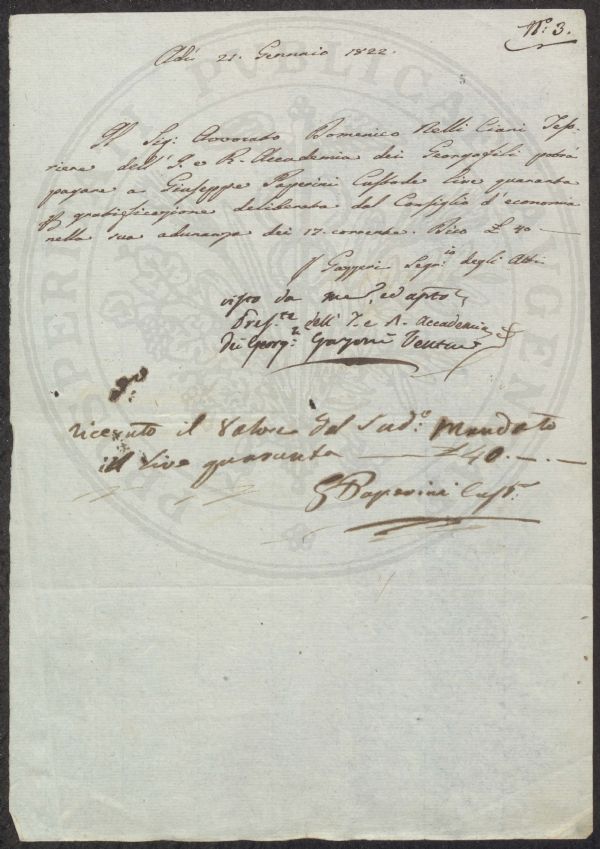 N.o 3.
Adì 21. Gennaio 1822.
5
Il Sig: Avvocato Domenico Nelli Ciani Teso-
riere dell' I. e R. Accademia dei Georgofili potrà
pagare a Giuseppe Paperini Custode lire quaranta
gratificazione deliberata dal Consiglio d'economia
nella sua adunanza dei 17. corrente. Dico £ 40
Gazzeri Segr.io degli Atti
visto da me
Pres.te dell' I. e R. Accademia
dei Georg.i Garzoni Venturi
ricevuto il valore del Sud.o Mandato
lire quaranta £ 40.
G Paperini Cus.
PROSPERITATI PUBLICAE AUGENDAE